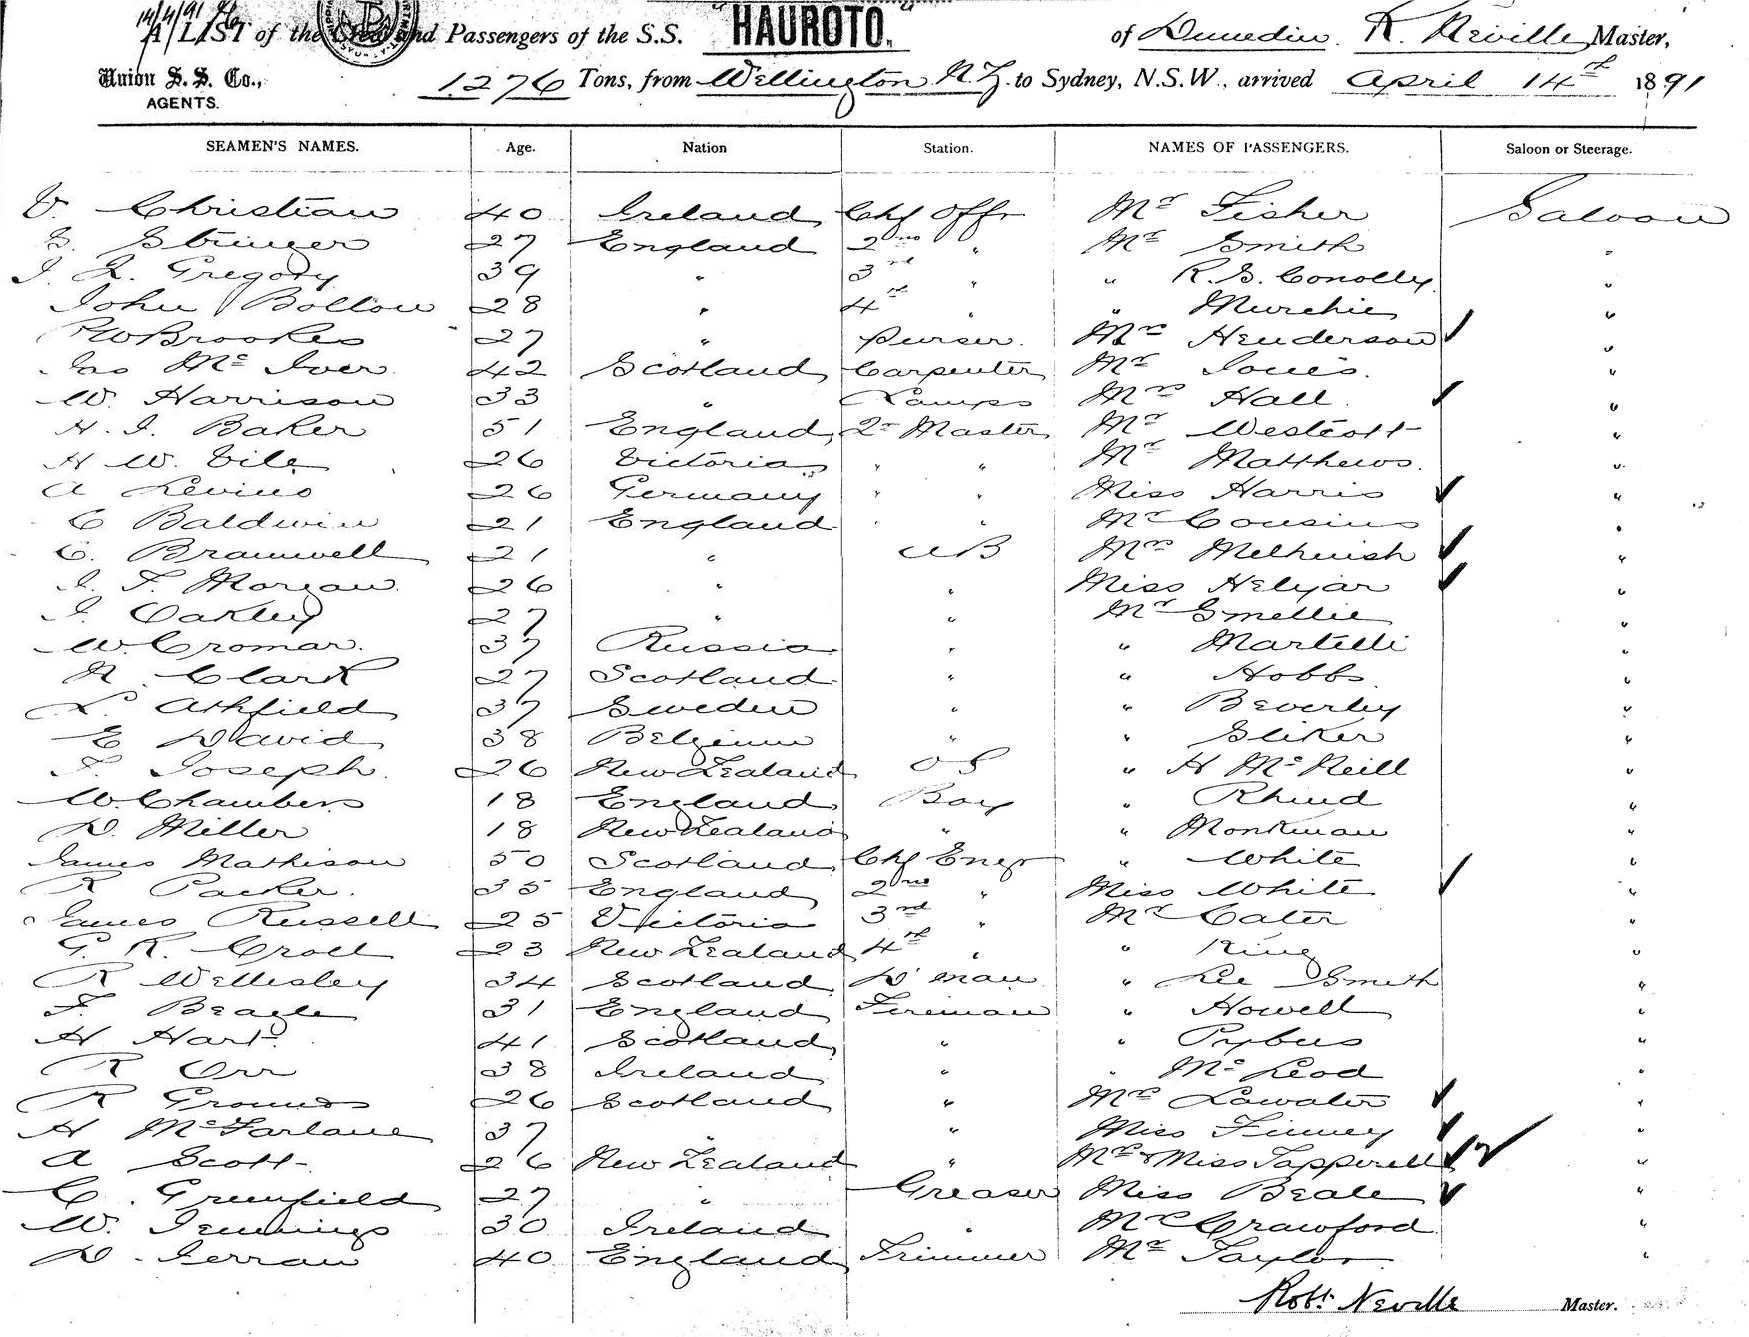 14/4/91
A LIST of the Crew and Passengers of the S.S. "HAUROTO," of Dunedin R. Neville Master,
Union S. S. Co., AGENTS. 1276 Tons, from Wellington N.Z. to Sydney, N.S.W., arrived April 14th 1891
SEAMEN'S NAMES. Age. Nation Station. NAMES OF PASSENGERS. Saloon or Steerage.
V. Christian 40 Ireland Chf Offr Mr Fisher Saloon
G. Stringer 27 England 2nd " Mr Smith "
J. L. Gregory 39 " 3rd " " R. G. Conolly "
John Bollow 28 " 4th " " Murchie "
Brookes 27 " Purser Mrs Henderson "
Jas McIver 42 Scotland Carpenter Mr Jones "
W. Harrison 33 " Lamps Mrs Hall "
H. J. Baker 51 England Qr Master Mr Westcott "
H W. Vile 26 Victoria " " Mr Matthews "
A Levins 26 Germany " " Miss Harris "
C Baldwin 21 England " " Mr Cousins "
C. Bramwell 21 " AB Mrs Melhuish "
J. T. Morgan 26 " " Miss Helyar "
J. Oakley 27 " " Mr Smellie "
W. Cromar 37 Russia " " Martelli "
N. Clark 27 Scotland " " Hobbs "
L. Ashfield 37 Sweden " " Beverley "
E David 38 Belgium " " Sliker "
T. Joseph 26 New Zealand OS " H McNeill "
W. Chambers 18 England Boy " Rhind "
D. Miller 18 New Zealand " " Monkman "
James Mathison 50 Scotland Chf Engr " White "
R Packer 35 England 2nd " Miss White "
James Russell 25 Victoria 3rd " Mr Cater "
G. K. Croll 23 New Zealand 4th " " King "
R Wellisley 34 Scotland D'man " Lee Smith "
F. Beagle 31 England Fireman " Howell "
H Hart 41 Scotland " " Pybus "
R Orr 38 Ireland " " McLeod "
R Grounds 26 Scotland " Mrs Lawater "
H McFarlane 37 " " Miss Finney "
A Scott 26 New Zealand " Mrs & Miss Tapperell "
C. Greenfield 27 " Greaser Miss Beale "
W. Jennings 30 Ireland " Mr Crawford "
D. Ferran 40 England Trimmer Mr Taylor "
Robt Neville Master.